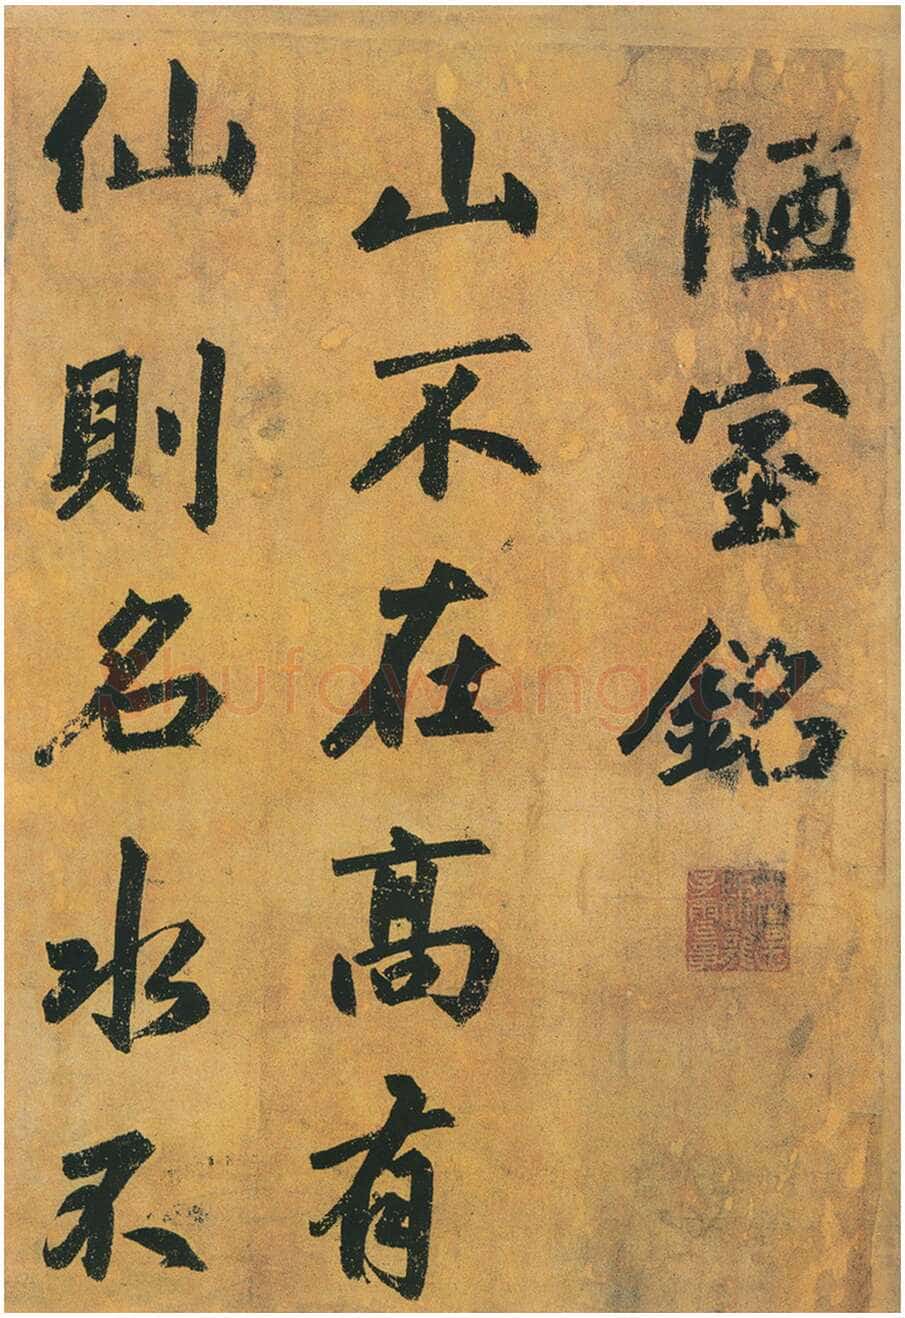 陋室銘
山不在高有
仙則名水不
shufawang.cn